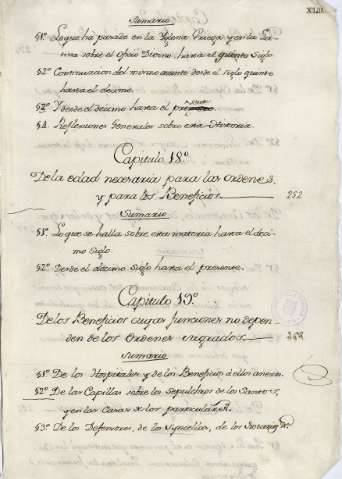 XLIII
Sumario
§1º Lo que ha pasado en la Yglesia Griega, y en la La-
tina sobre el Oficio Divino, hasta el quinto Siglo
§2º Continuacion del mismo asunto desde el siglo quinto
hasta el decimo.
§3º Y desde el decimo hasta el
§4. Reflexiones Generales sobre esta Historia
Capitulo 18º
De la edad necesaria para las ordenes,
y para los Beneficios. 252
Sumario
§1º Lo que se halla sobre esta materia hasta el deci-
mo Siglo
§2º Desde el decimo Siglo hasta el presente.
Capitulo 19º
De los Beneficios cuyas funciones no depen-
den de los Ordenes sagrados.
Sumario
§1º De los Hospitales y de los Beneficios à ellos anexos.
§2º De las Capillas sobre los Sepulchros de los Santos,
y en las Casas de los particulares.
§3º De los Defensores, de los Syncellos, de los